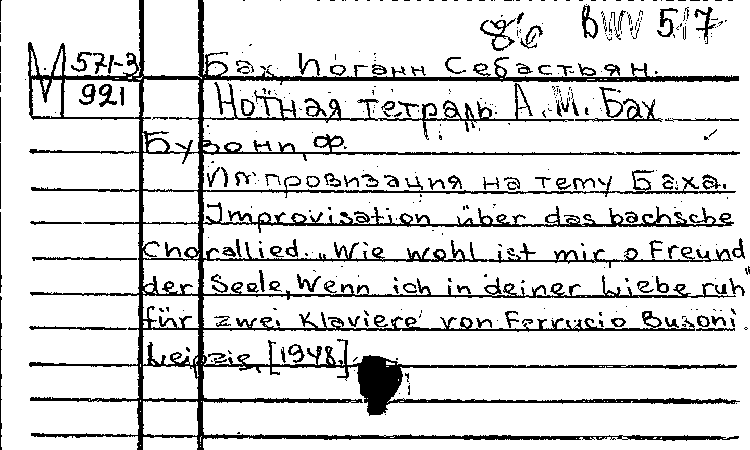 86 BWV 517
М 571-3
921
Бах, Иоганн Себастьян.
Нотная тетрадь А. М. Бах
Бузони, Ф.
Импровизация на тему Баха.
Improvisation über das bachsche
Chorallied. „Wie wohl ist mir, o Freund
der Seele, Wenn ich in deiner Liebe ruh"
für zwei Klaviere von Ferrucio Busoni.
Leipzig, [1948]